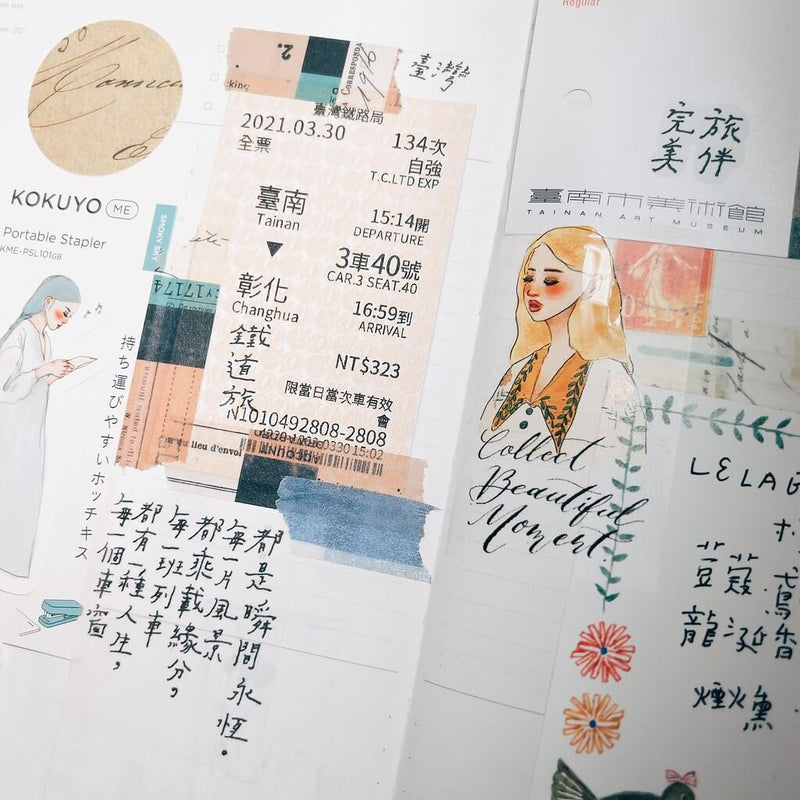 KOKUYO ME
Portable Stapler
KME-PSL101GB
持ち運びやすいホッチキス
SMOKY SKY
2.
CORRESPONDA
1916
臺灣
臺灣鐵路局
2021.03.30
134次
全票
自強
T.C.LTD EXP
臺南
Tainan
15:14開
DEPARTURE
3車40號
CAR.3 SEAT.40
彰化
Changhua
16:59到
ARRIVAL
NT$323
限當日當次車有效
鐵道旅
N1010492808-2808
du lieu d'envoi
每一個車窗
都有一種人生，
每一班列車
都乘載緣分，
每一片風景
都是瞬間永恆。
Regular
完美
旅伴
臺南市美術館
TAINAN ART MUSEUM
Collect
Beautiful
Moment.
豆蔻
龍涎香
煙火薰